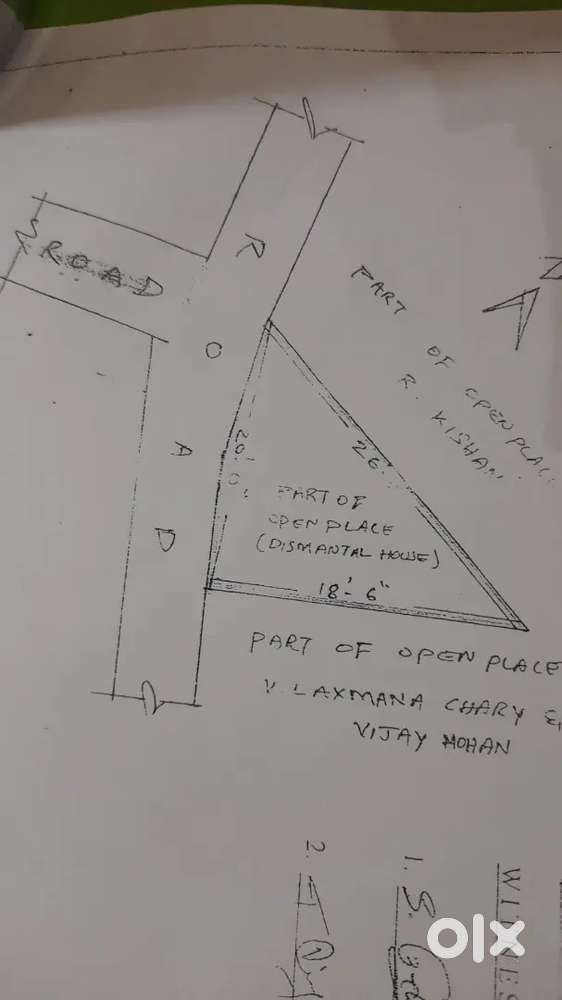 ROAD
ROAD
N
PART OF OPEN PLACE
R. KISHAN
20'. 0"
26
PART OF
OPEN PLACE
(DISMANTAL HOUSE)
18'- 6"
PART OF OPEN PLACE
V. LAXMANA CHARY &
VIJAY MOHAN
WITNES
1. S.
2.
olx